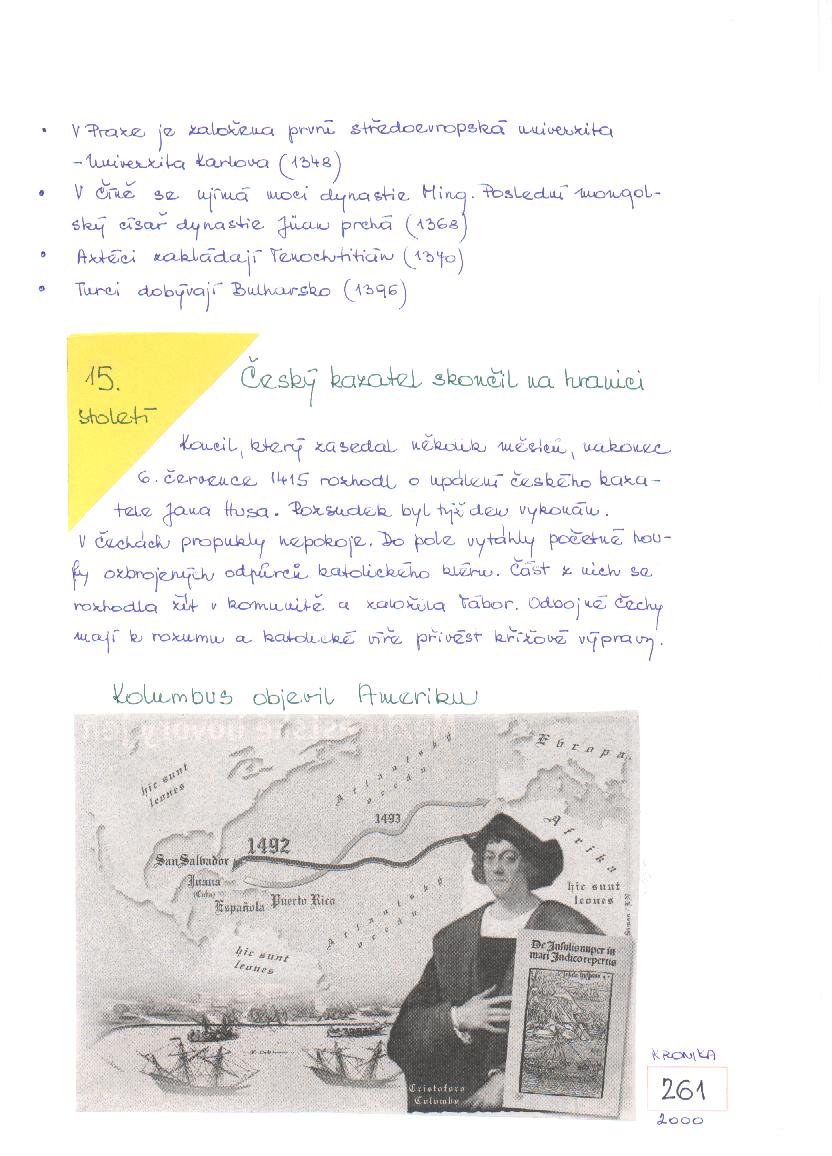 • V Praze je založena první středoevropská univerzita
- Univerzita Karlova (1348)
• V Číně se ujímá moci dynastie Ming. Poslední mongol-
ský císař dynastie Jüan prchá (1368)
• Aztéci zakládají Tenochtitián (1370)
• Turci dobývají Bulharsko (1396)
15.
století
Český kazatel skončil na hranici
Koncil, který zasedal několik měsíců, nakonec
6. července 1415 rozhodl o upálení českého kaza-
tele Jana Husa. Rozsudek byl týž den vykonán.
V Čechách propukly nepokoje. Do pole vytáhly početné hou-
fy ozbrojených odpůrců katolického kléru. Část z nich se
rozhodla žít v komunitě a založila Tábor. Odbojné Čechy
mají k rozumu a katolické víře přivést křížové výpravy.
Kolumbus objevil Ameriku
Evropa
hic sunt
leones
Atlantský
oceán
1493
1492
Afrika
San Salvador
Juana
(Cuba)
Española
Puerto Rico
hic sunt
leones
Atlantský
oceán
hic sunt
leones
De Insulis nuper in
mari Indico repertis
Cristoforo
Columbo
KRONIKA
261
2000